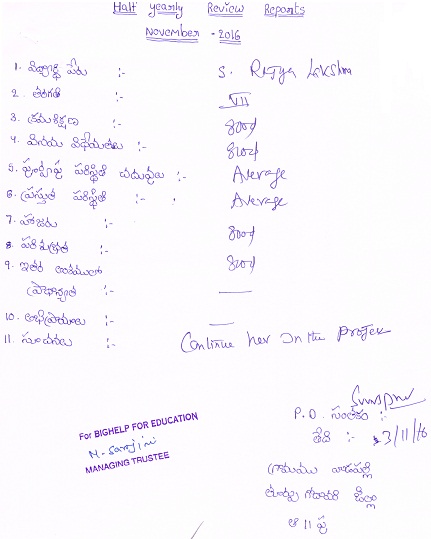 Half yearly Review Reports
November - 2016
1. విద్యార్థి పేరు :- S. Rajya Lakshma
2. తరగతి :- VII
3. క్రమశిక్షణ :- Good
4. వినయ విధేయతలు :- Good
5. పూర్వపు పరిస్థితి చదువులు :- Average
6. ప్రస్తుత పరిస్థితి :- Average
7. హాజరు :- Good
8. పరిశుభ్రత :- Good
9. ఇతర అంశములలో
ప్రాధాన్యత :- —
10. అభిప్రాయాలు :- —
11. సూచనలు :- Continue her in the project
P.D. సంతకం :-
తేది :- 3/11/16
For BIGHELP FOR EDUCATION
M. Sarojini
MANAGING TRUSTEE
గ్రామము వాడపల్లి
తూర్పు గోదావరి జిల్లా
ఆ ప్ర